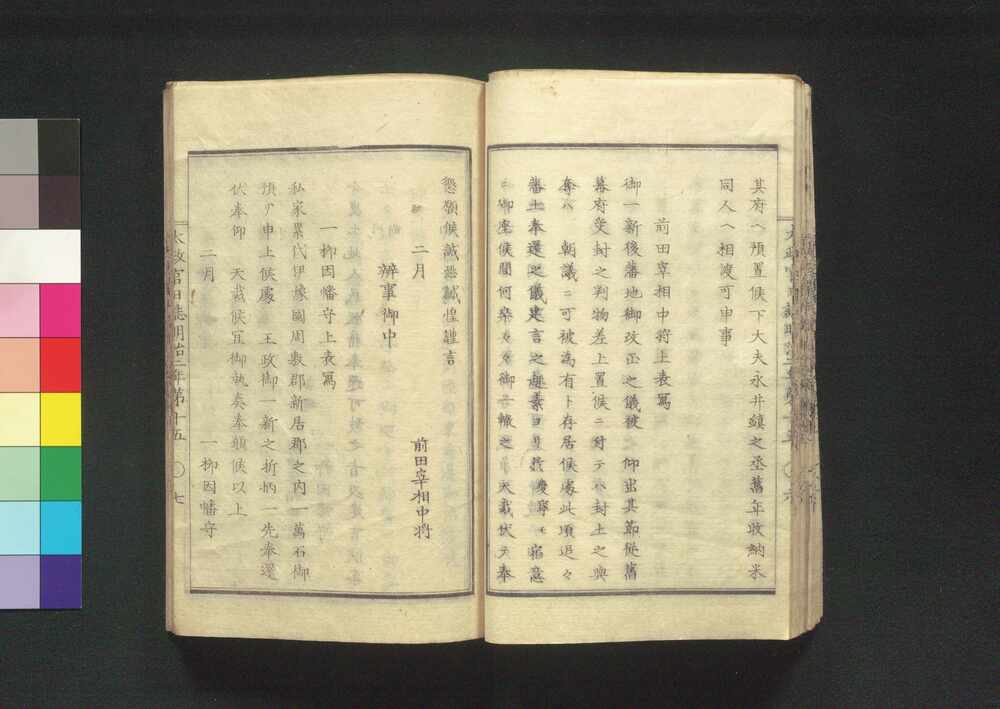 其府ヘ預置候下大夫永井鎮之丞舊年收納米
同人ヘ相渡可申事
前田宰相中将上表寫
御一新後藩地御改正之儀被 仰出其節從舊
幕府受封之判物差上置候ニ付テハ封土之與
奪ハ 朝議ニ可被為有ト存居候處此頃追々
藩士奉還之儀建言之
ニ御座候間何卒 御一轍之 天裁伏テ奉
懇願候誠恐誠惶謹言
二月 前田宰相中将
辨事御中
一柳因幡守上表寫
私家累代伊豫國周敷郡新居郡之内一萬石御
預リ申上候處 王政御一新之折柄一先奉還
伏奉仰 天裁候宜御執奏奉願候以上
二月 一柳因幡守
太政官日誌明治二年第十五 〇七